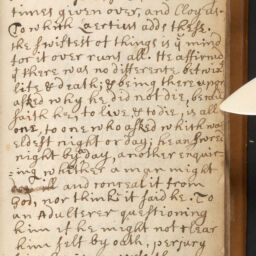 times given over, and Cloyed.
To which Laertius adds these.
the swiftest of things is ye mind
for it over runs all. He affirmed
yt there was no difference betwixt
life & death; & being there upon
asked why he did not die, becau
saith he, to live, & to die, is all
one, to one who asked which was
eldest night or day; he answered
night by day, another enquir-
ing whether a man might
ill and conceal it from
God, nor think it said he. To
an Adulterer questioning
him if he might not clear
him self by oath, perjury